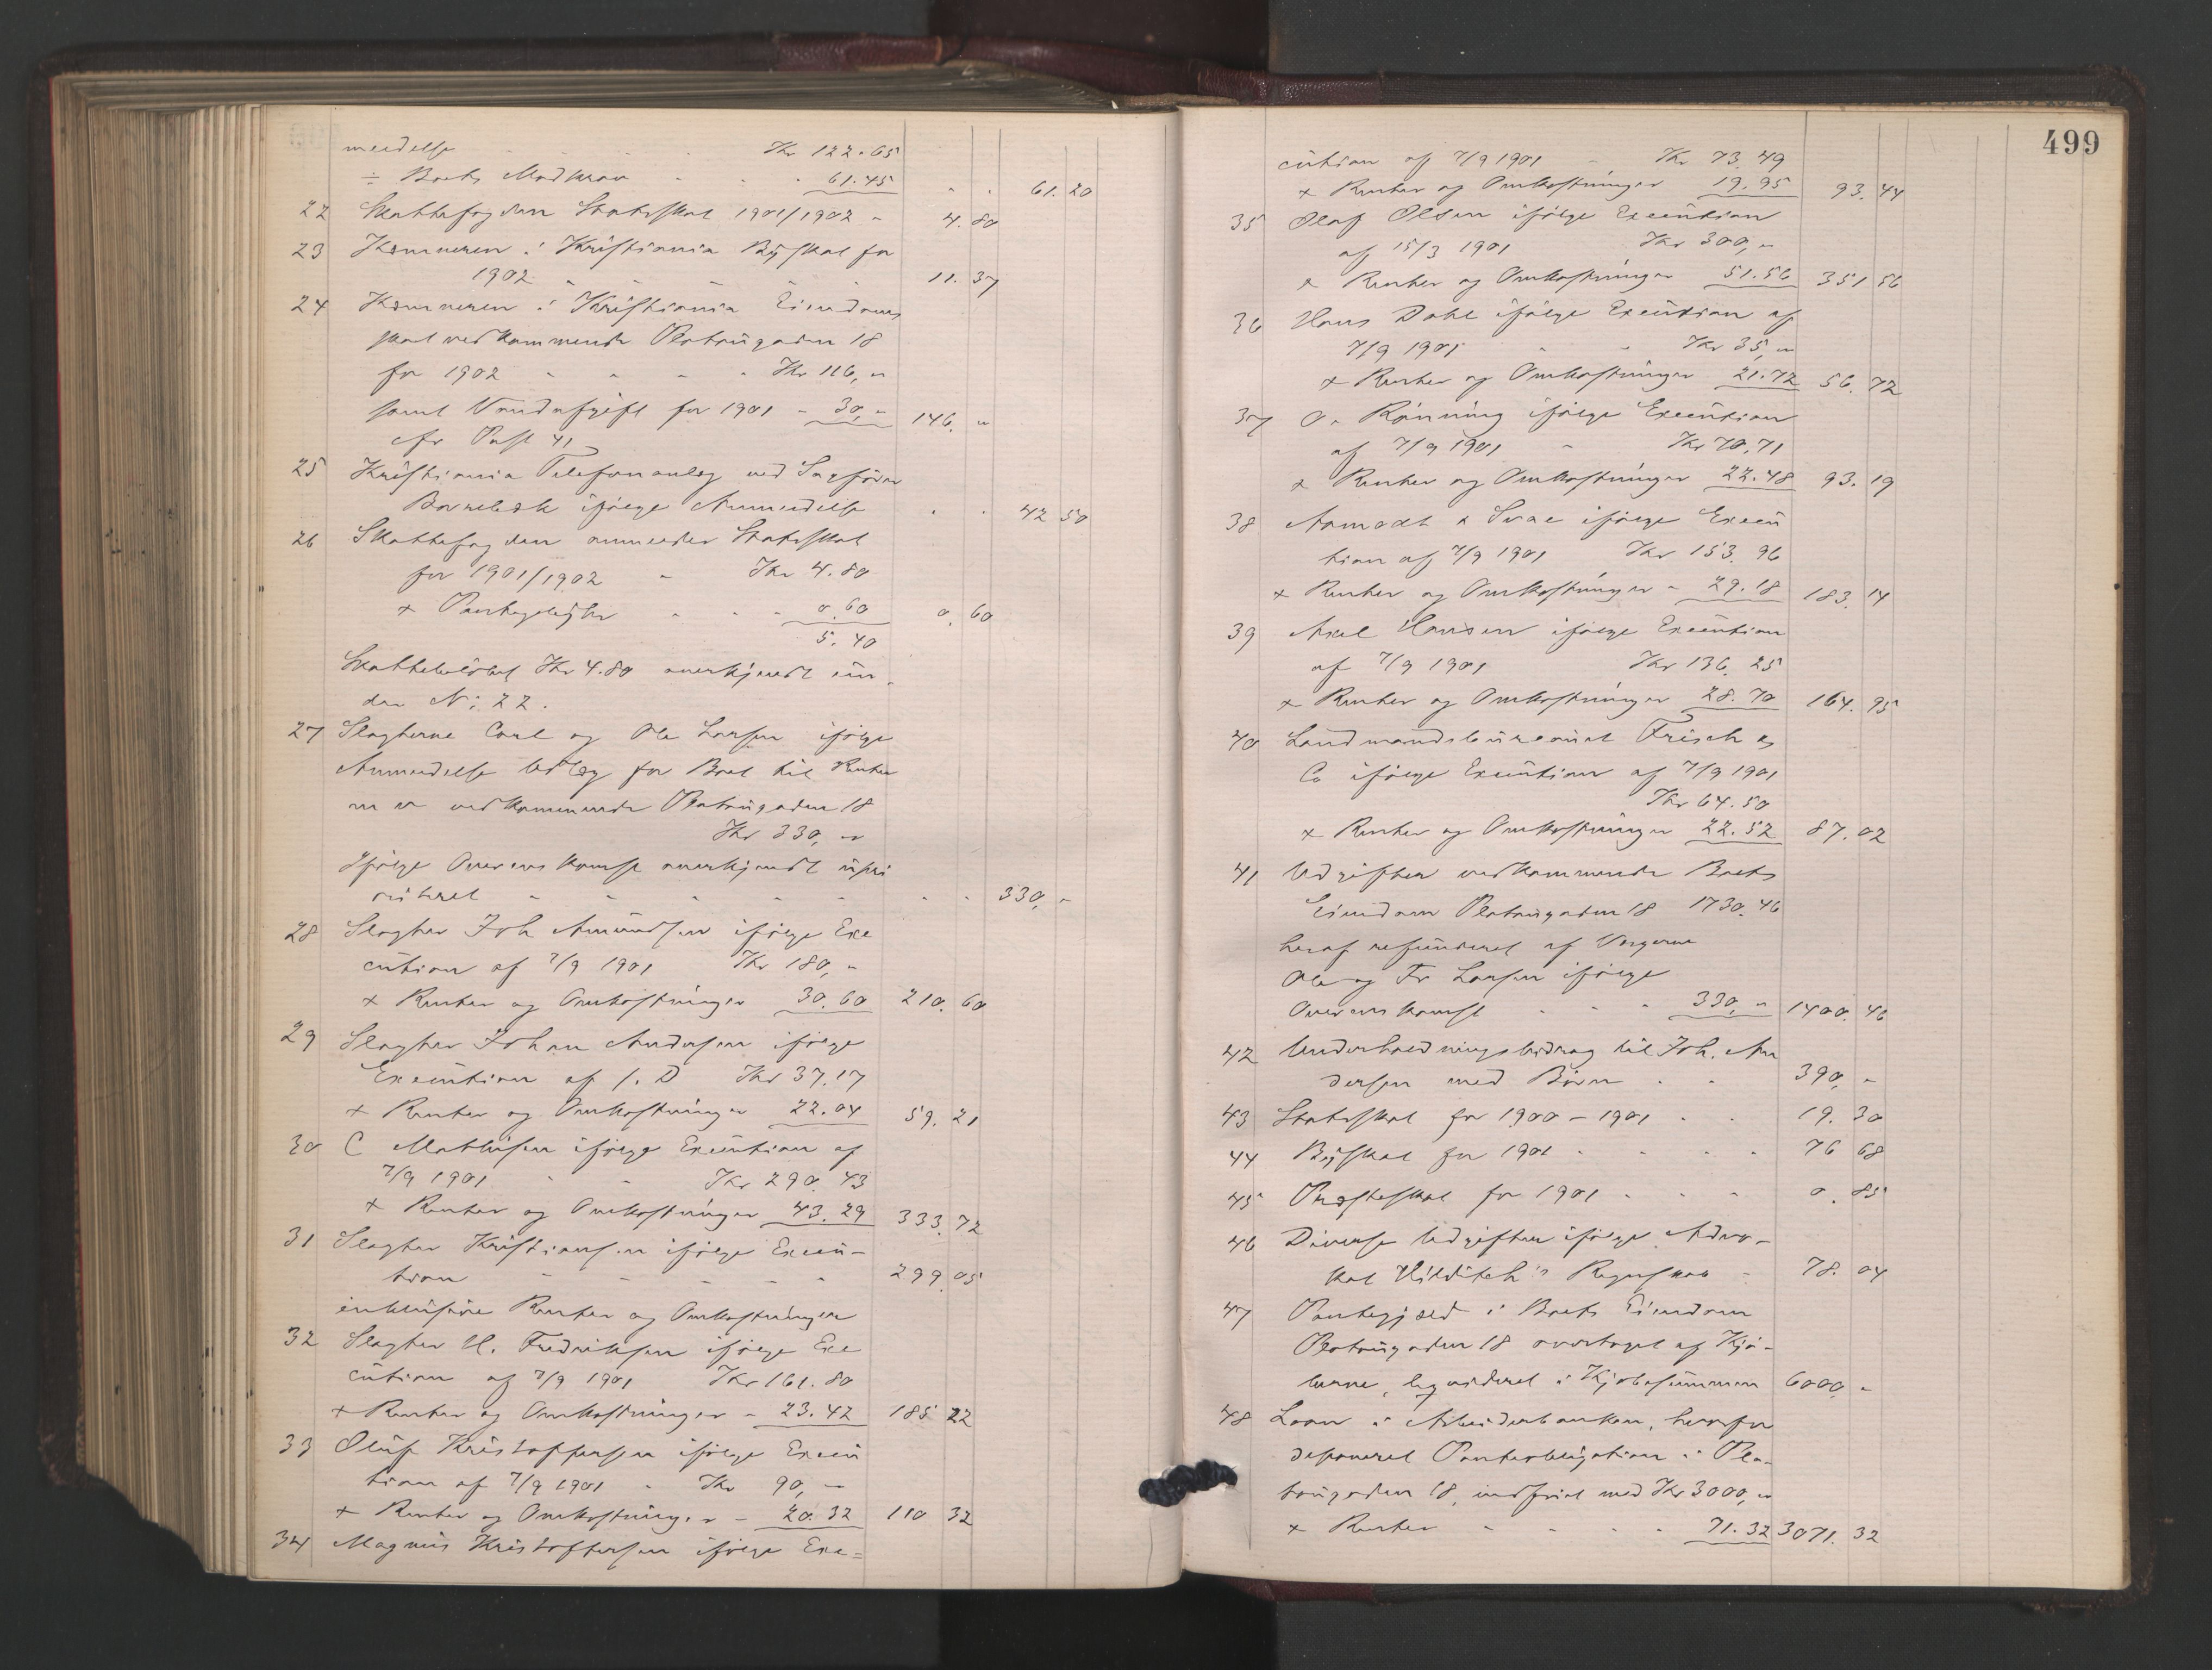 meldelse - Kr 122.65
÷ Boets Modkrav - - - 61.45 " " 61.20
22 Skattefogden Statsskat 1901/1902 - 4.80
23 Kæmneren i Kristiania Byskat for
1902 - - - - - 11.37
24 Kæmneren i Kristiania Eiendoms
skat vedkommende Platougaden 18
for 1902 - - - - Kr 116,"
samt Vandafgift for 1901 - 30," 146. "
cfr Post 41
25 Kristiania Telefonanlæg ved Sagfører
ifølge Anmeldelse " " 42 50
26 Skattefogden anmelder Statsskat
for 1901/1902 - Kr 4.80
+ Pantegebyhr - - - 0.60 0.60
5.40
Skattebeløbet Kr 4.80 anerkjendt un-
der No: 22.
27 Slagterne Carl og Ole Larsen ifølge
Anmeldelse Udlæg for Boet til Renter
m v vedkommende Platougaden 18
Kr 330,"
Ifølge Overenskomst anerkjendt upri
oriteret - - - - - " " 330,"
28 Slagter Joh Amundsen ifølge Exe
cution af 7/9 1901 Kr 180,"
+ Renter og Omkostninger 30.60 210.60
29 Slagter Johan Andersen ifølge
Execution af s. D Kr 37.17
+ Renter og Omkostninger 22.04 59.21
30 C Mathisen ifølge Execution af
7/9 1901 - - Kr 290.43
+ Renter og Omkostninger 43.29 333.72
31 Slagter Kristiansen ifølge Execu-
tion - - - - - 299.05
inklusive Renter og Omkostninger
32 Slagter H. Fredriksen ifølge Exe
cution af 7/9 1901 Kr 161.80
+ Renter og Omkostninger - 23.42 185 22
33 Oluf Kristoffersen ifølge Execu
tion af 7/9 1901 - Kr 90,"
+ Renter og Omkostninger - 20.32 110 32
34 Magnus Kristoffersen ifølge Exe=
499
cution af 7/9 1901 - Kr 73.49
+ Renter og Omkostninger 19.95 93.44
35 Olaf Olsen ifølge Execution
af 15/3 1901 Kr 300,"
+ Renter og Omkostninger 51.56 351 56
36 Hans Dahl ifølge Execution af
7/9 1901 - - Kr 35,"
+ Renter og Omkostninger 21.72 56.72
37 O. Rønning ifølge Execution
af 7/9 1901 - Kr 70.71
+ Renter og Omkostninger 22.48 93.19
38 Aamodt & Svae ifølge Execu
tion af 7/9 1901 Kr 153.96
+ Renter og Omkostninger - 29.18 183.14
39 Axel Hansen ifølge Execution
af 7/9 1901 Kr 136.25
+ Renter og Omkostninger 28.70 164.95
40 Landmandsbureauet Frisch &
Co ifølge Execution af 7/9 1901
Kr 64.50
+ Renter og Omkostninger 22.52 87.02
41 Udgifter vedkommende Boets
Eiendom Platougaden 18 1730.46
heraf refunderet af
Ole og Fr Larsen ifølge
Overenskomst - - - 330," 1400.46
42 Underholdningsbidrag til Joh. An
dersen med Børn - - 390,"
43 Statsskat for 1900 - 1901 - - 19.30
44 Byskat for 1901 - - - - 76 68
45 Præsteskat for 1901 - - - 0.85
46 Diverse Udgifter ifølge Advo-
kat Hilditch's Regnskab - 78.04
47 Pantegjæld i Boets Eiendom
Platougaden 18 overtaget af Kjø-
berne, liqvideret i Kjøbesummen 6000,"
48 Laan i Arbeiderbanken, hvorfor
deponeret Panteobligation i Pla-
tougaden 18, indfriet med Kr 3000,"
+ Renter - - - - 71.32 3071.32